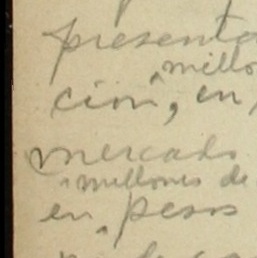 presenta
millo
ción, en
mercado
millones de
en pesos